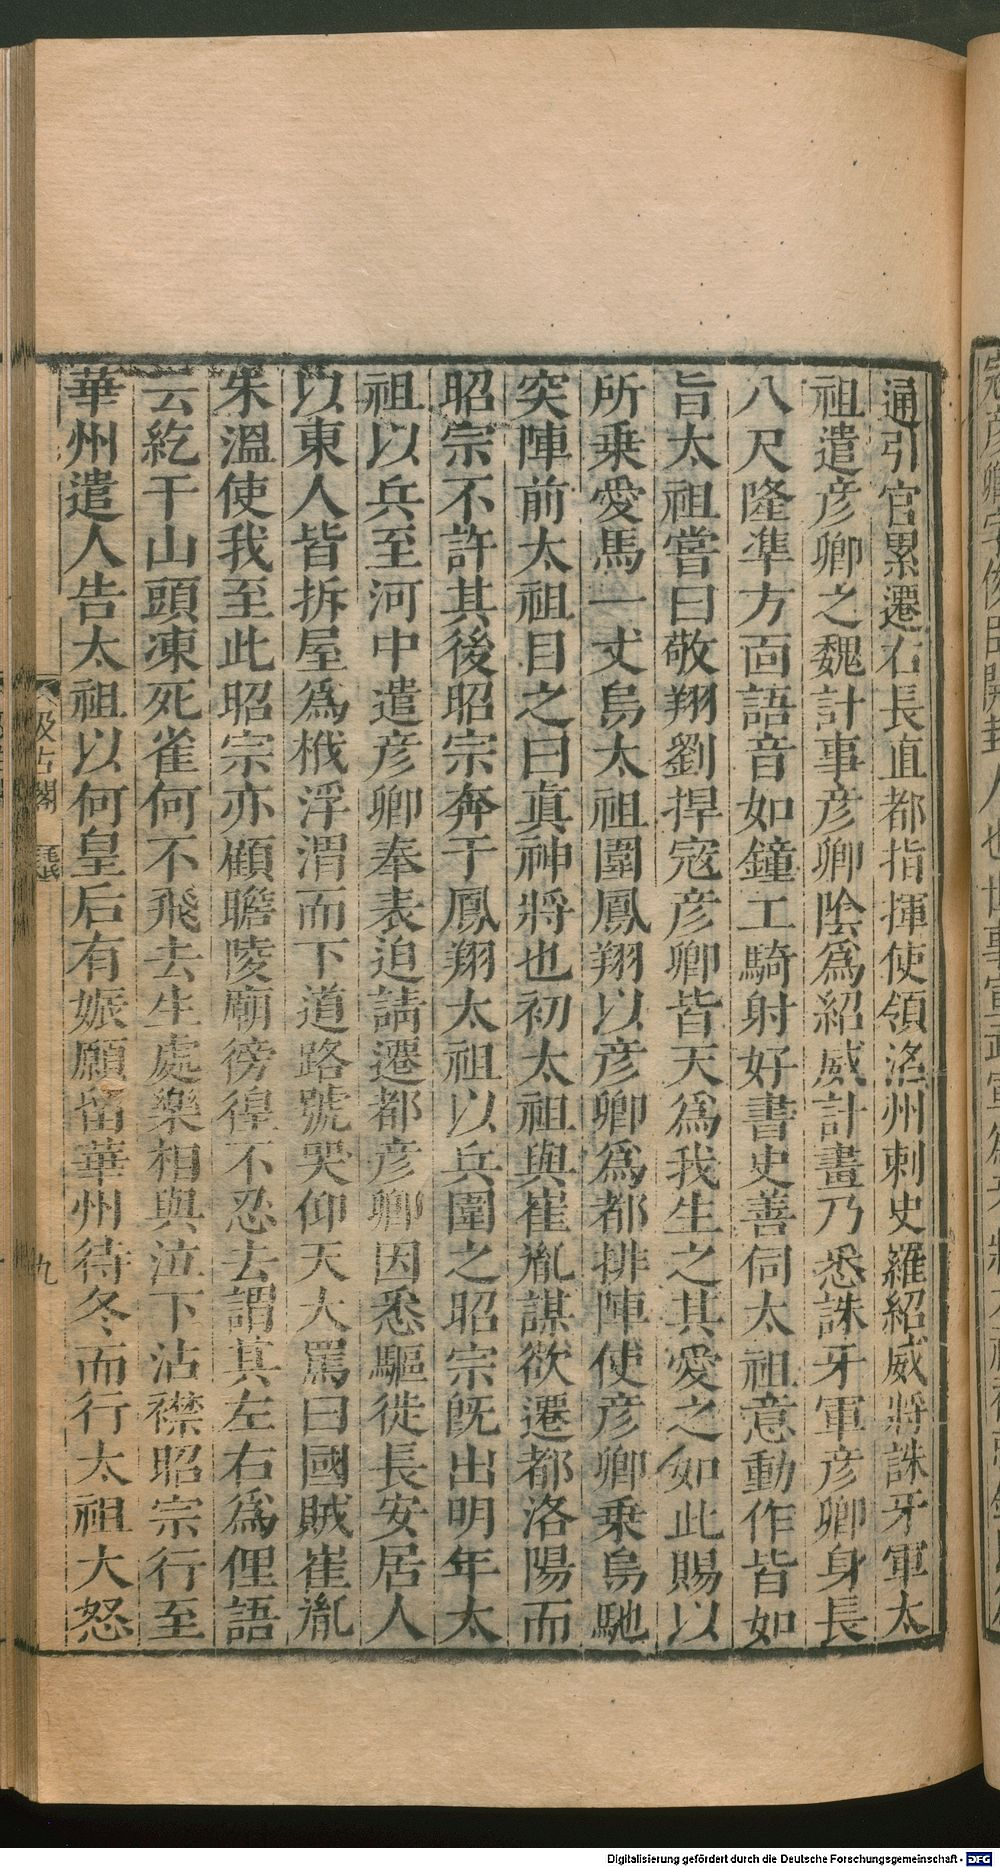 通引官累遷右長直都指揮使領洺州刺史羅紹威將誅牙軍太
祖遣彥卿之魏計事彥卿陰爲紹威計畫乃悉誅牙軍彥卿身長
八尺隆準方面語音如鐘工騎射好書史善伺太祖意動作皆如
旨太祖嘗曰敬翔劉捍寇彥卿皆天爲我生之其愛之如此賜以
所乗愛馬一丈烏太祖圍鳳翔以彥卿爲都排陣使彥卿乗烏馳
突陣前太祖目之曰眞神將也初太祖與崔胤謀欲遷都洛陽而
昭宗不許其後昭宗奔于鳳翔太祖以兵圍之昭宗旣出明年太
祖以兵至河中遣彥卿奉表迫請遷都彥卿因悉驅徙長安居人
以東人皆拆屋爲栰浮渭而下道路號哭仰天大罵曰國賊崔胤
朱溫使我至此昭宗亦顧瞻陵廟徬徨不忍去謂其左右爲俚語
云紇干山頭凍死雀何不飛去生處樂相與泣下沾襟昭宗行至
華州遣人告太祖以何皇后有娠願留華州待冬而行太祖大怒
汲古閣
九
Digitalisierung gefördert durch die Deutsche Forschungsgemeinschaft - DFG